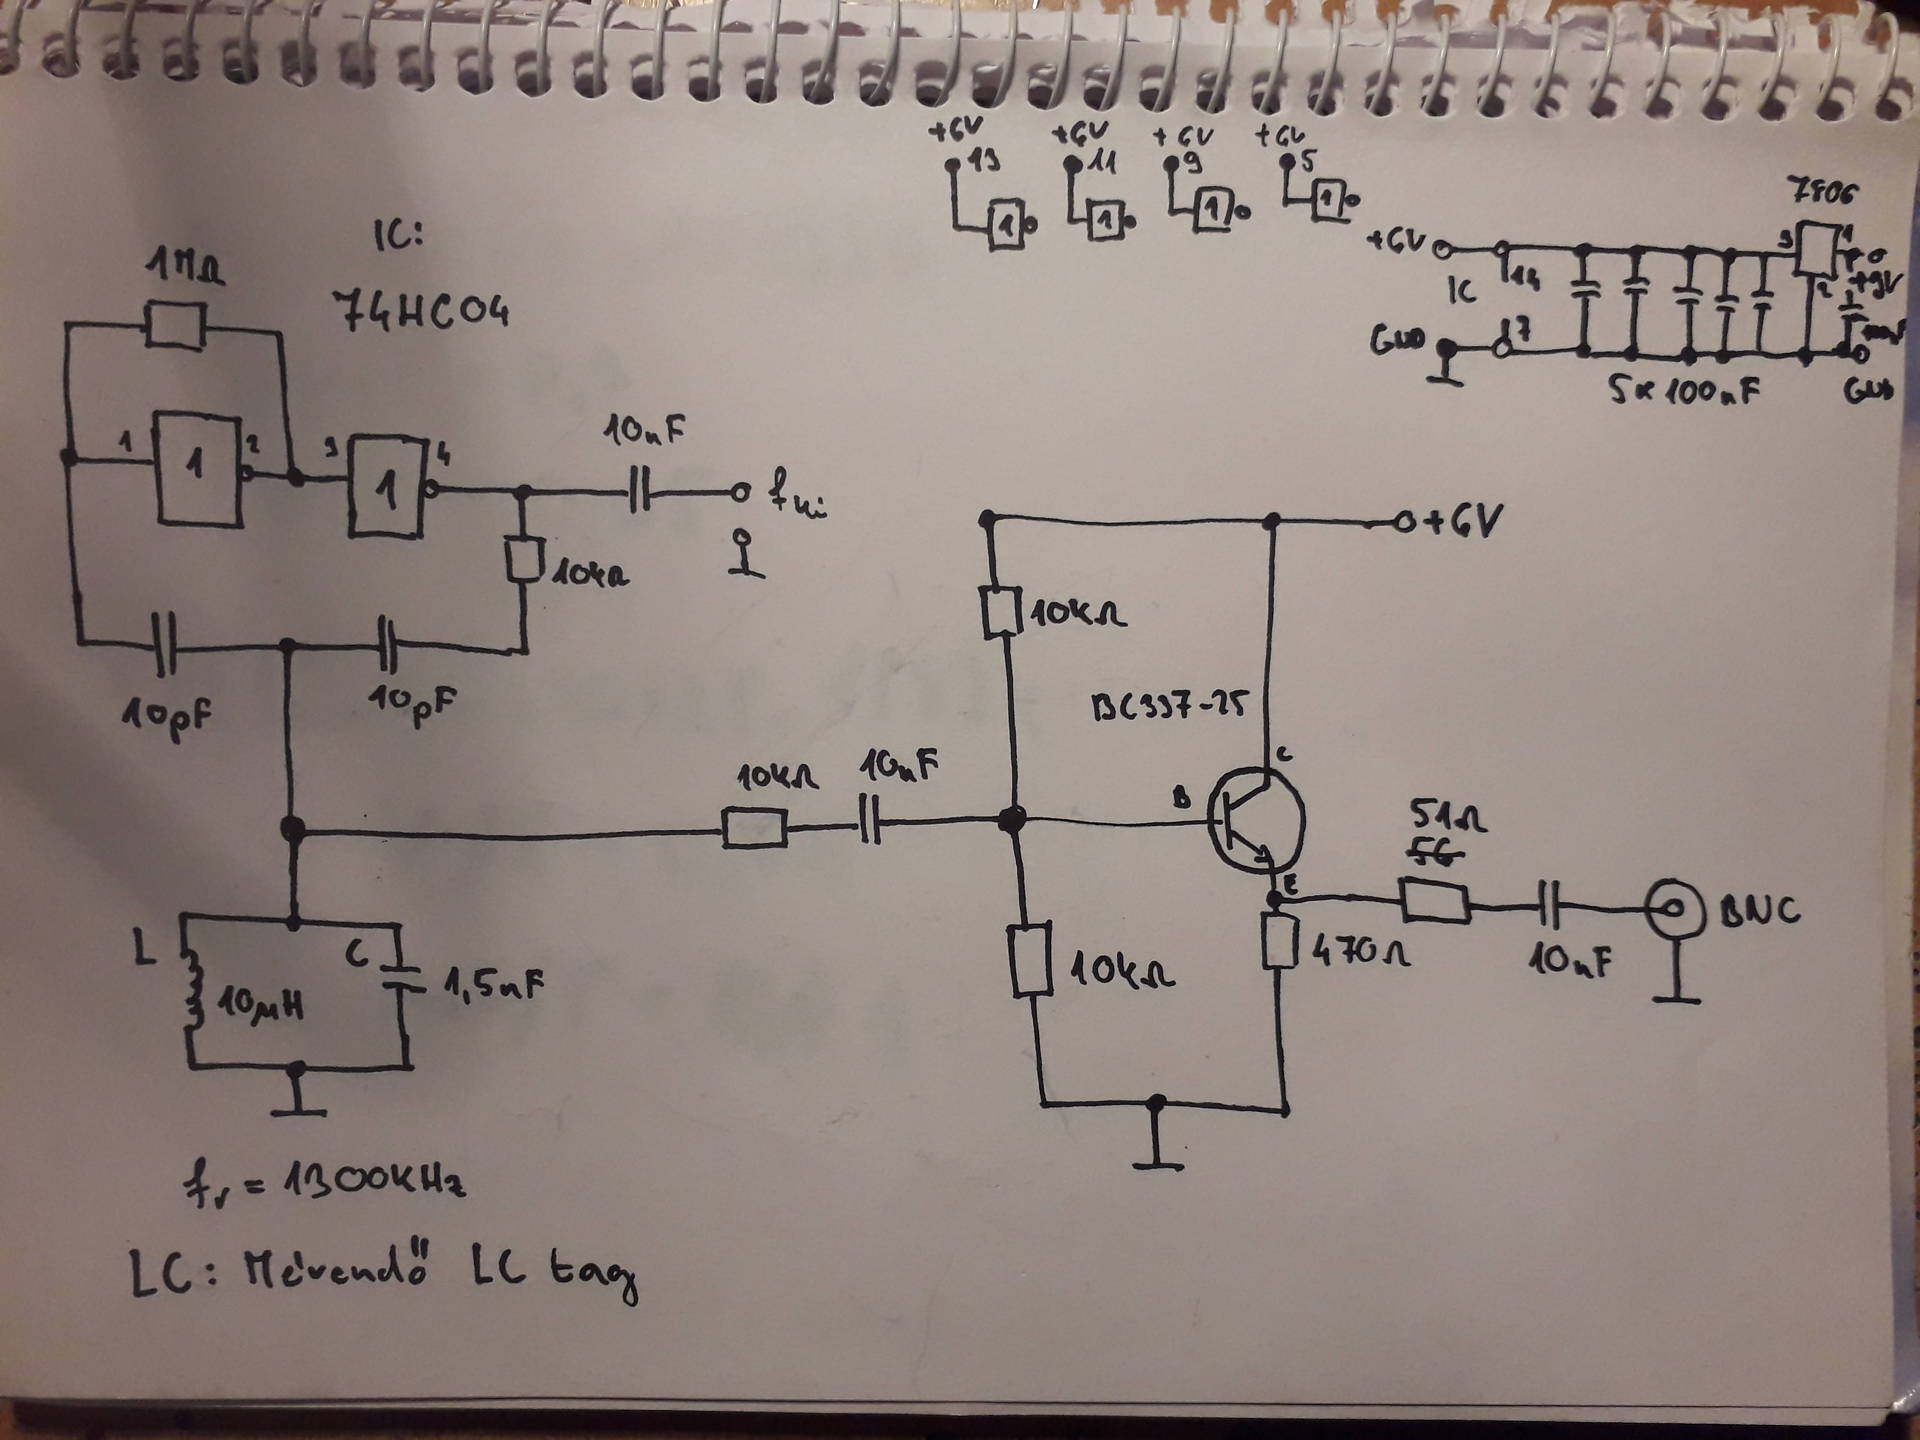 +6V +6V +6V +6V
13 11 9 5
1 1 1 1
7806
+6V 14 3 1
IC 2 +9V
GND 7
5x100nF GND
IC:
74HC04
1MΩ
1 1 2 3 1 4
10nF
fki
10kΩ
10pF 10pF
+6V
10kΩ
BC337-25
10kΩ 10nF B C
E
51Ω
56
BNC
470Ω 10nF
10kΩ
L 10µH C 1,5nF
fr = 1300KHz
LC: Mérendő LC tag